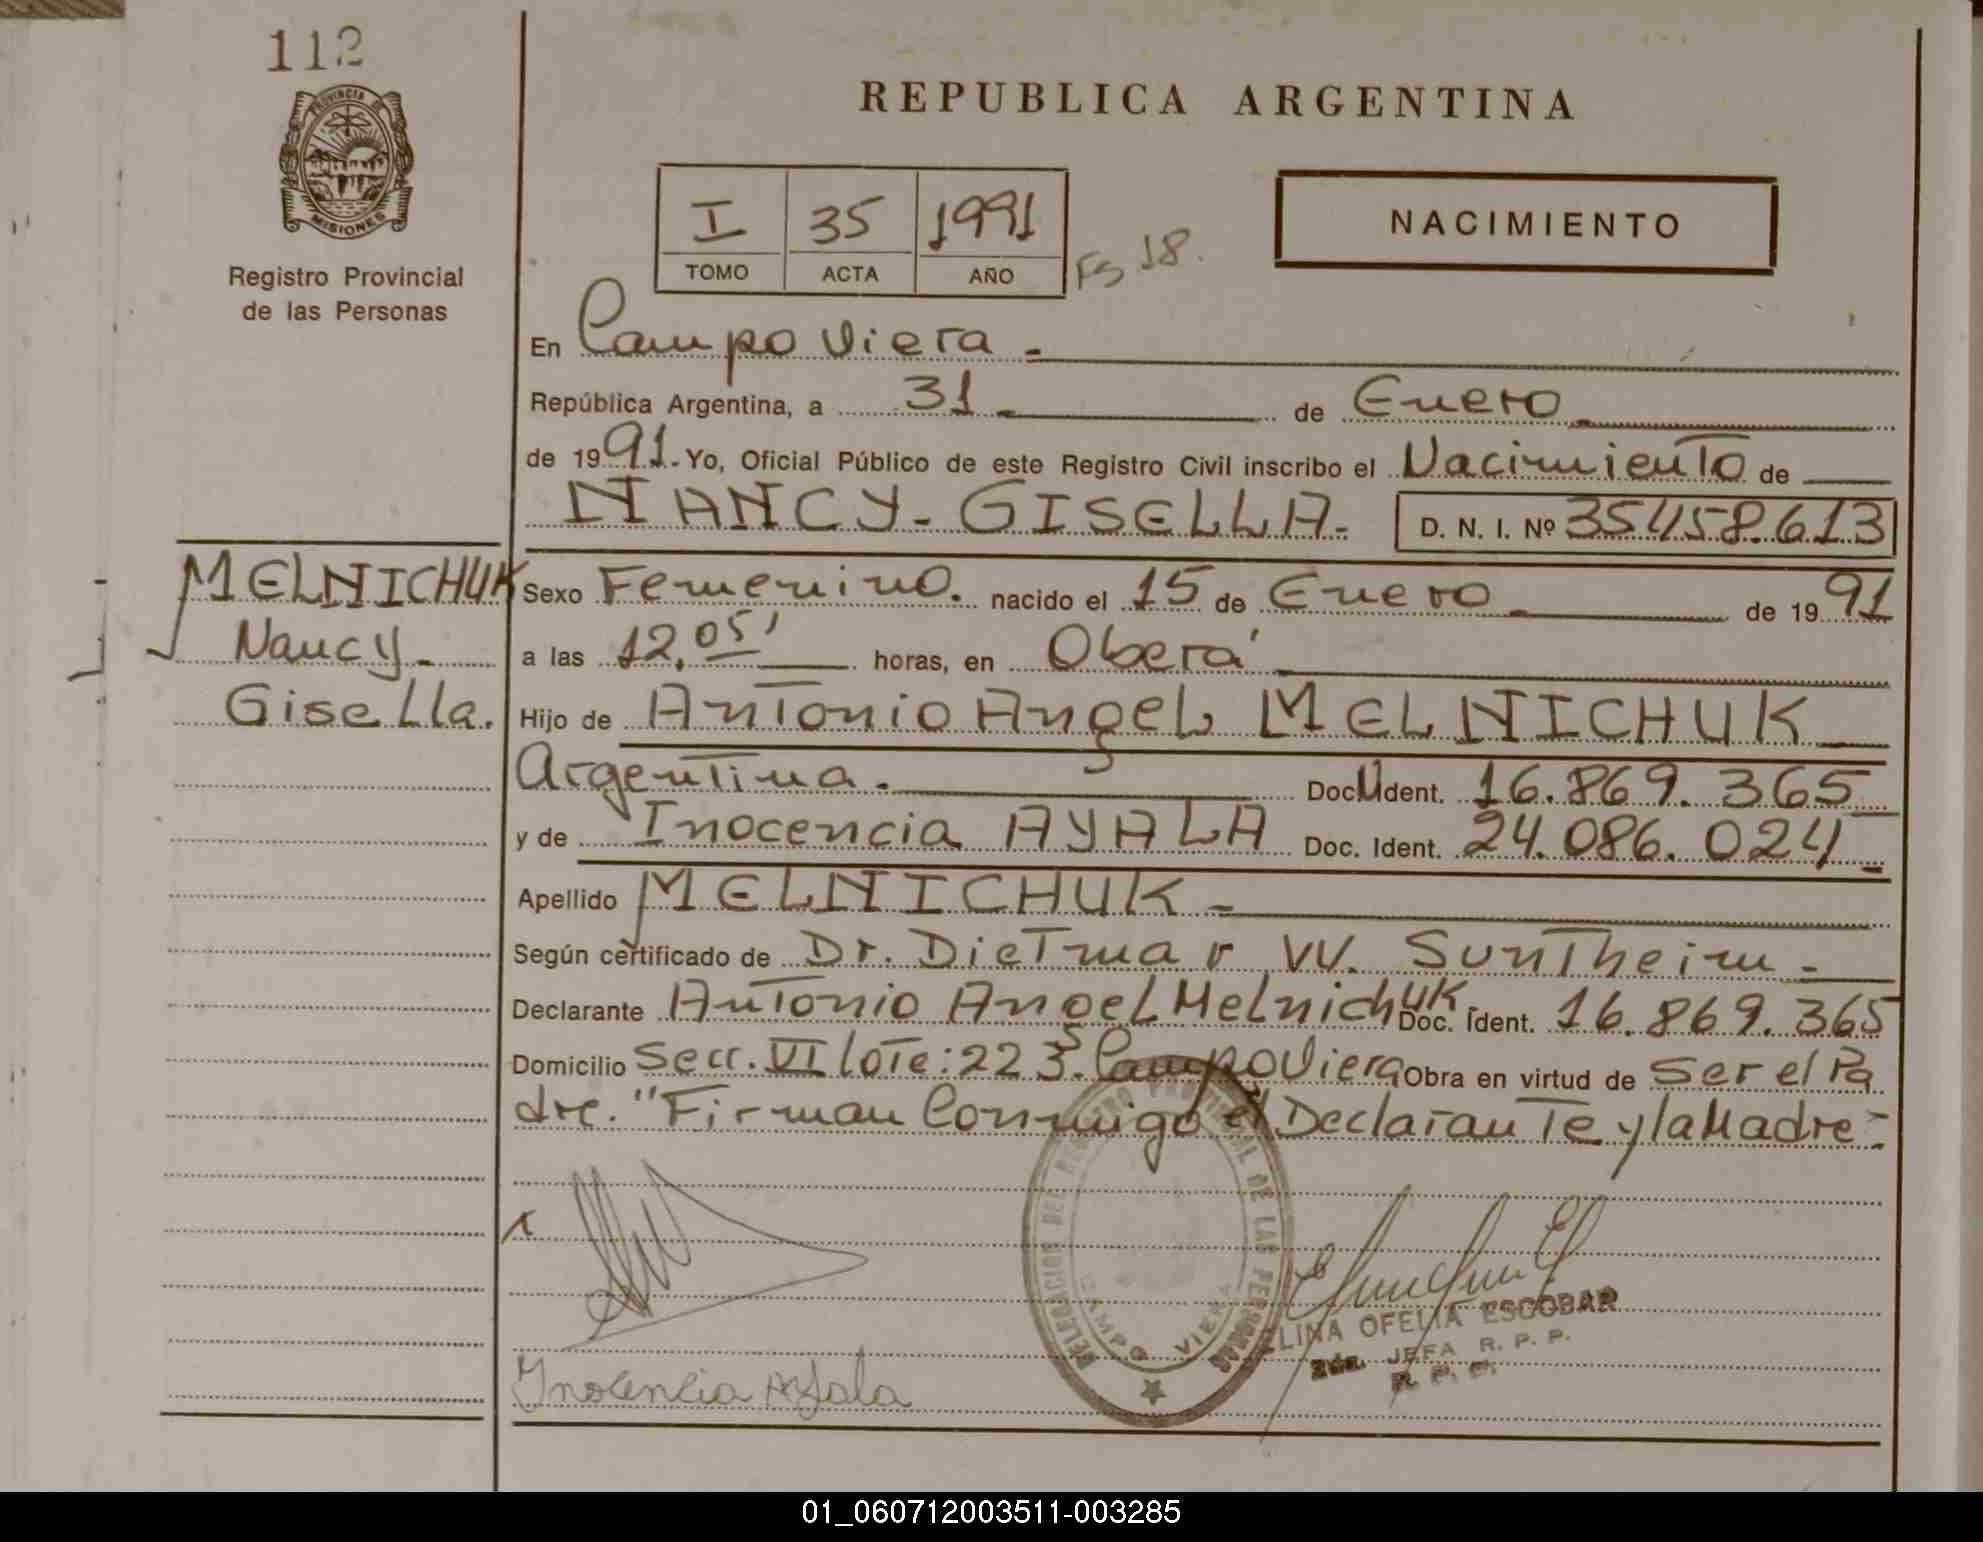 112
PROVINCIA DE
MISIONES
Registro Provincial
de las Personas
REPUBLICA ARGENTINA
I 35 1991
TOMO ACTA AÑO
Fs 18.
NACIMIENTO
En Campo Viera -
República Argentina, a 31 de Enero
de 1991. Yo, Oficial Público de este Registro Civil inscribo el Nacimiento de
NANCY - GISELLA - D. N. I. Nº 35.458.613
MELNICHUK
Nancy -
Gisella.
Sexo Femenino. nacido el 15 de Enero de 1991
a las 12,05' horas, en Oberá
Hijo de Antonio Angel MELNICHUK
Argentina. Doc. Ident. 16.869.365
y de Inocencia AYALA Doc. Ident. 24.086.024
Apellido MELNICHUK -
Según certificado de Dr. Dietmar W. Suntheim -
Declarante Antonio Angel Melnichuk Doc. Ident. 16.869.365
Domicilio Secc. VI lote: 223. Campo Viera Obra en virtud de Ser el Pa
dre. "Firman Conmigo el Declarante y la Madre -
DELEGACION DEL REGISTRO PROVINCIAL DE LAS PERSONAS
CAMPO VIERA
ELINA OFELIA ESCOBAR
2da. JEFA R. P. P.
R. P. P.
Inocencia Ayala
01_060712003511-003285